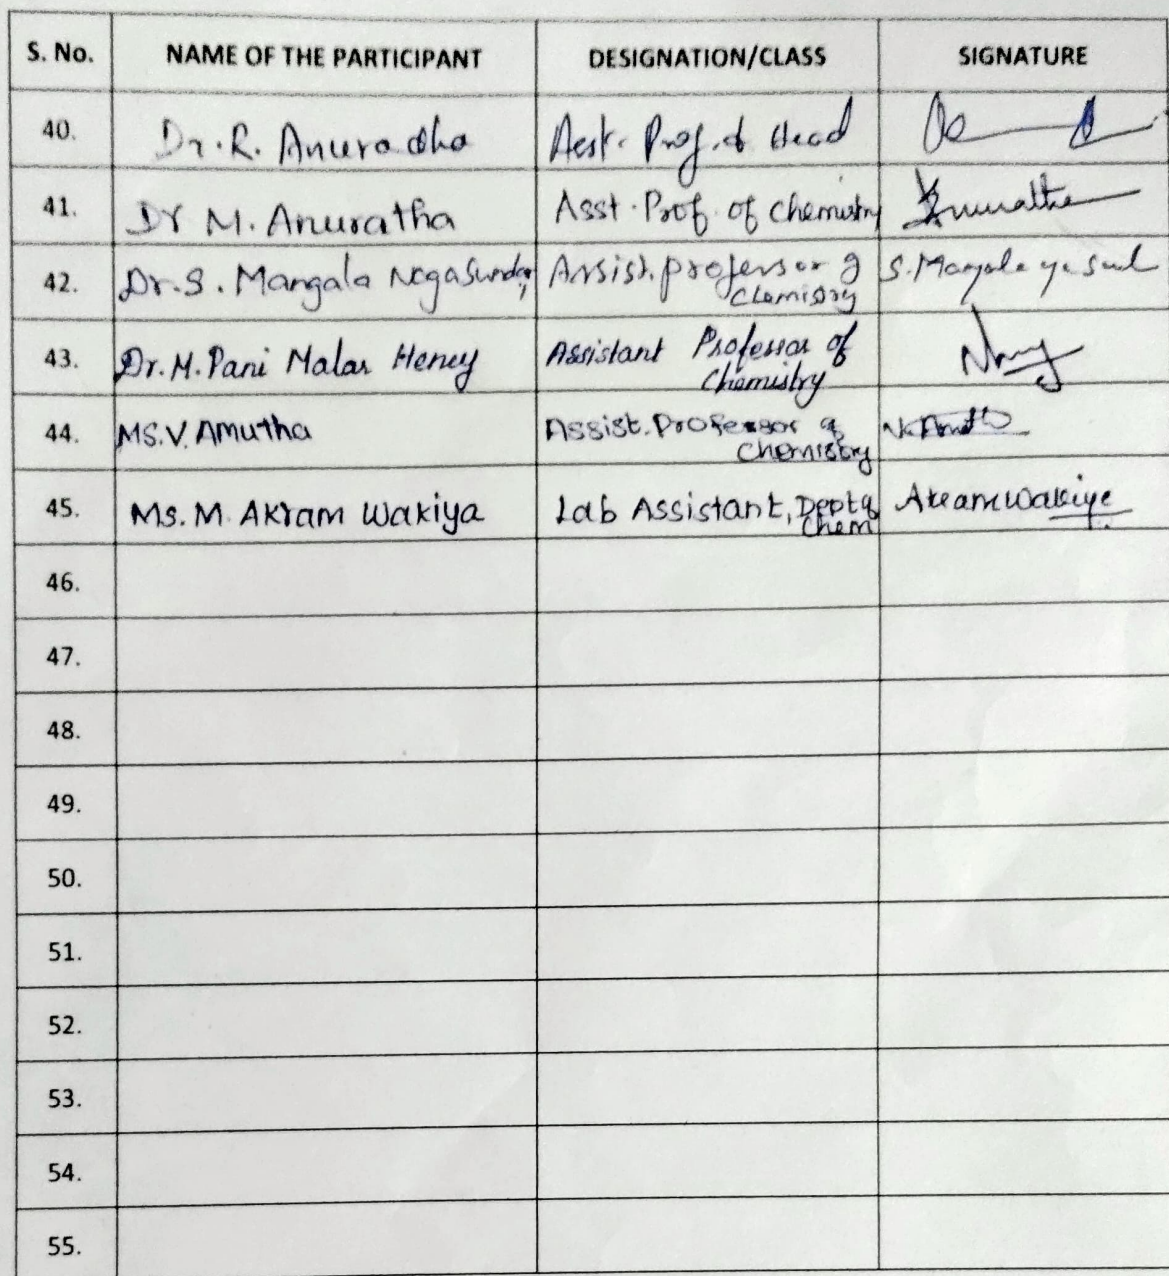 S. No. NAME OF THE PARTICIPANT DESIGNATION/CLASS SIGNATURE
40. Dr. R. Anuradha Asst. Prof. & Head
41. Dr M. Anuratha Asst. Prof. of Chemistry Anuratha
42. Dr. S. Mangala Nagasundari Assist. professor of
Chemistry
43. Dr. M. Pani Malar Heney Assistant Professor of
Chemistry
44. MS. V. Amutha Assist. Professor of
Chemistry
V. Amutha
45. Ms. M. Akram Wakiya Lab Assistant, Dept of
Chem
Akram Wakiya
46.
47.
48.
49.
50.
51.
52.
53.
54.
55.